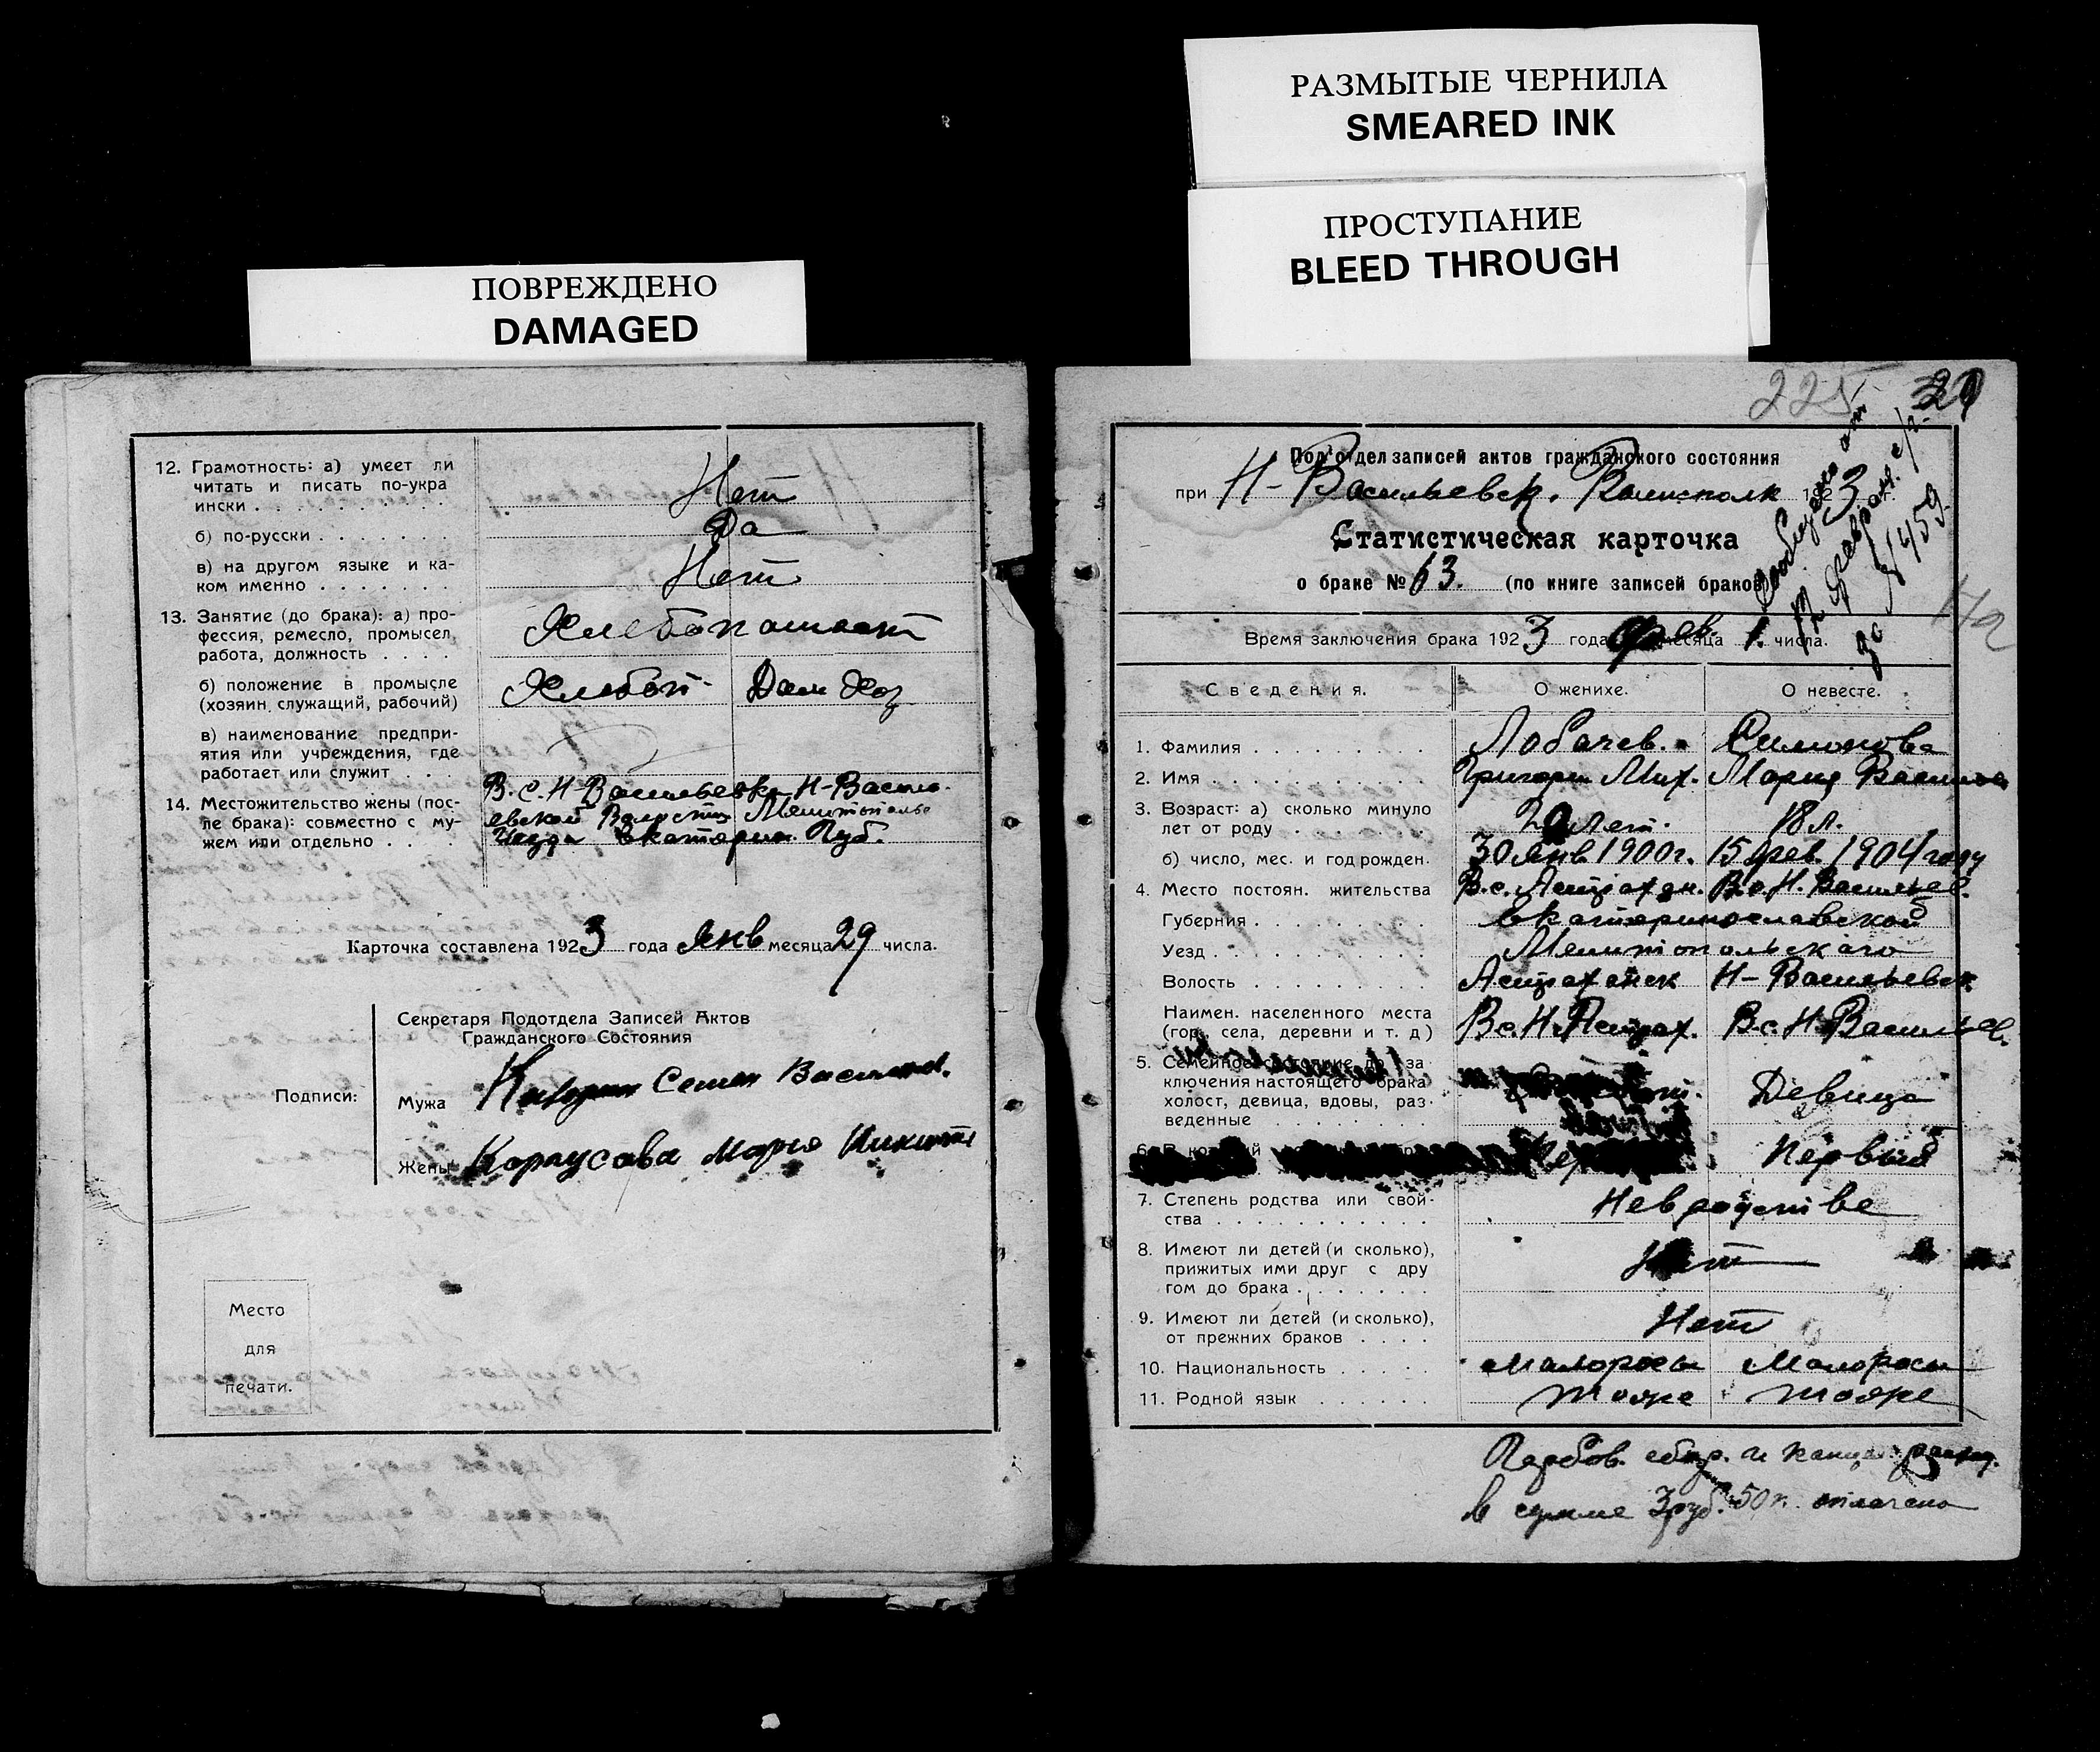 РАЗМЫТЫЕ ЧЕРНИЛА
SMEARED INK
ПРОСТУПАНИЕ
BLEED THROUGH
ПОВРЕЖДЕНО
DAMAGED
12. Грамотность: а) умеет ли
читать и писать по-укра
ински . . . Нет
б) по-русски . . . Да
в) на другом языке и ка-
ком именно . . . Нет
13. Занятие (до брака): а) про-
фессия, ремесло, промысел,
работа, должность . . . .
б) положение в промысле Хлебоп. Дом Хоз
(хозяин, служащий, рабочий)
в) наименование предпри-
ятия или учреждения, где
работает или служит . . .
14. Местожительство жены (пос-
ле брака): совместно с му-
жем или отдельно . . . .
В. С. Н-Васильевка Н-Василь-
евской Волости Мелитопольс
Уезда Екатерин. Губ.
Карточка составлена 1923 года Янв месяца 29 числа.
Секретаря Подотдела Записей Актов
Гражданского Состояния
Подписи:
Мужа Семен Васильев.
Жены Караусова Мария Никит
Место
для
печати.
225
Подотдел записей актов гражданского состояния
при Н-Васильевск. Волисполк 1923
Статистическая карточка
о браке № 63. (по книге записей браков)
Сообщено от
12 февраля с/г.
за № 459
Время заключения брака 1923 года фев. месяца 1. числа.
Сведения. О женихе. О невесте.
1. Фамилия . . . Лобачев. Симонова
2. Имя . . . Григорий Мих. Мария Васильев
3. Возраст: а) сколько минуло
лет от роду . . . 20 лет. 18 л.
б) число, мес. и год рожден. 30 янв 1900г. 15 фев. 1904 году
4. Место постоян. жительства В.с. Астрахан. В.с. Н. Васильев.
Губерния . . . Екатеринославской
Уезд . . . Мелитопольского
Волость . . . Астраханск Н-Васильевск
Наимен. населенного места
(гор., села, деревни и т. д.) В.с. Н. Астрах. В.с. Н. Васильев.
5. Семейное состояние до за
ключения настоящего брака
холост, девица, вдовы, раз-
веденные . . . Девица
6. Первый
7. Степень родства или свой-
ства . . . Не в родстве
8. Имеют ли детей (и сколько),
прижитых ими друг с дру
гом до брака . . . Нет
9. Имеют ли детей (и сколько),
от прежних браков . . . Нет
10. Национальность . . . Малоросы Малоросы
11. Родной язык . . . Тоже Тоже
Гербов. сбор. и канц. расход.
в сумме 3 руб. 50 к. оплачено